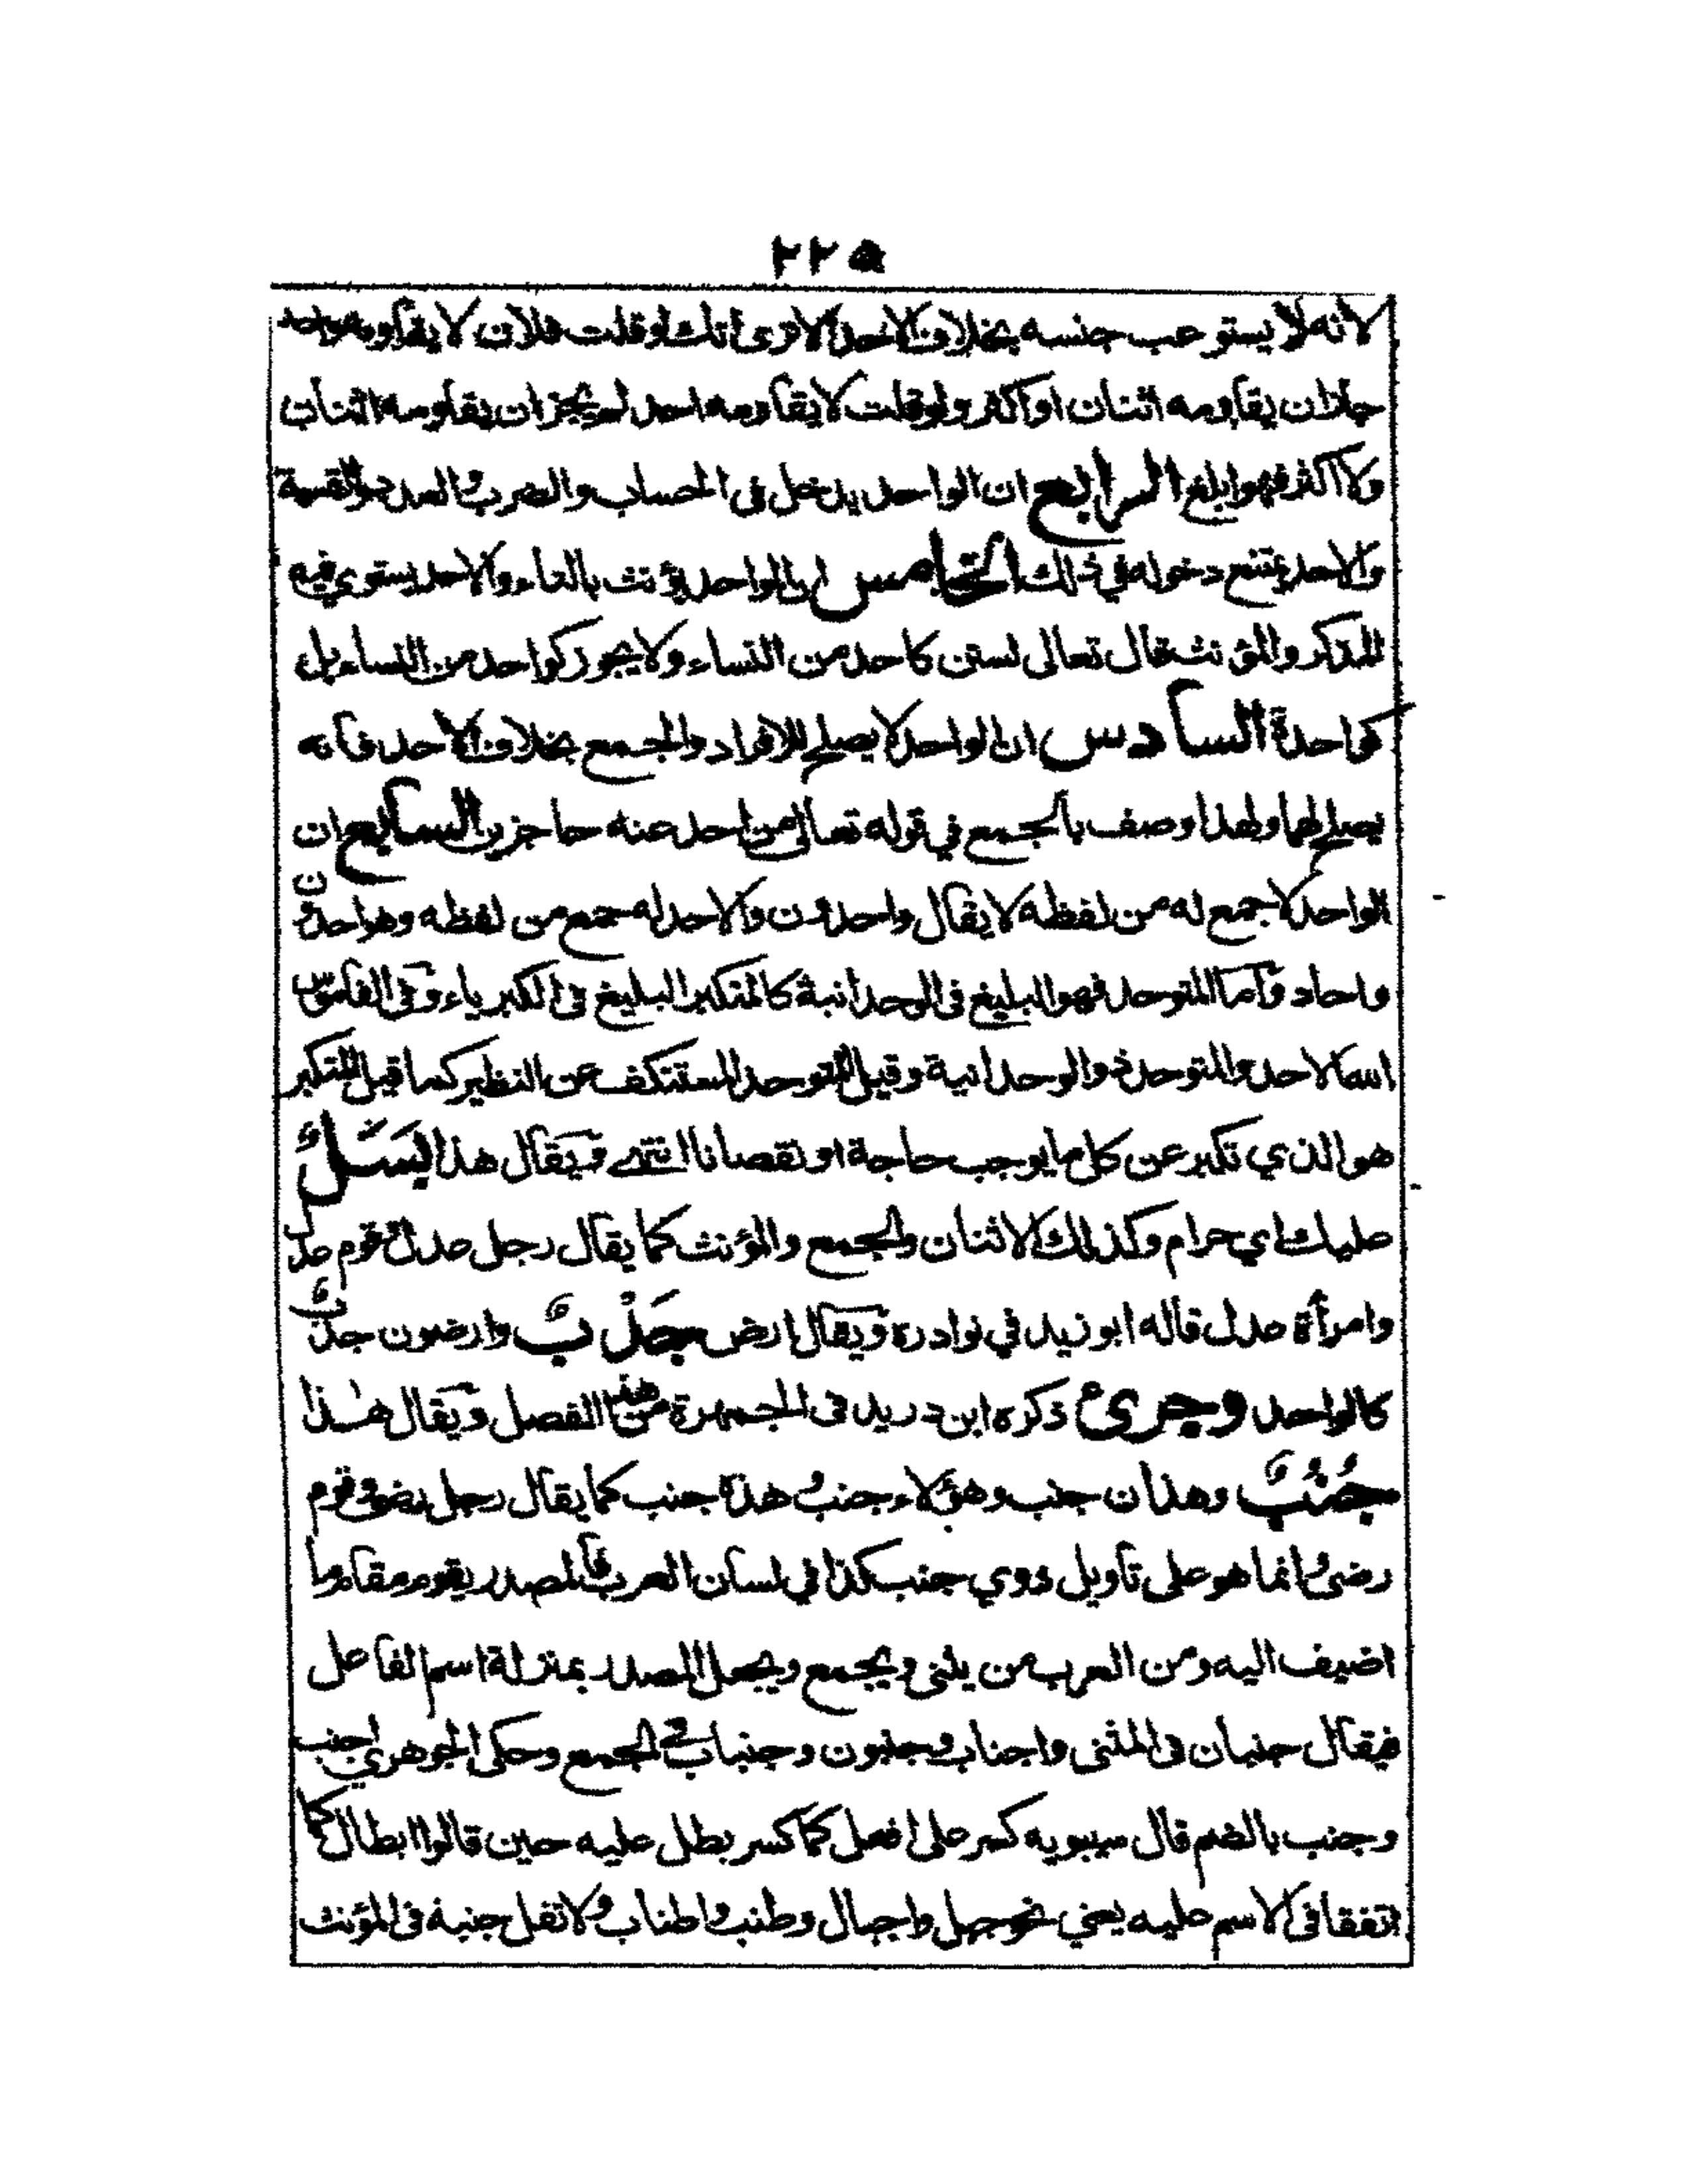 ٢٢٥
لانه لا يستوعب جنسه بخلاف الاحد الا ترى انك لو قلت فلان لا يقاومه واحد
جاز ان يقاومه اثنان او اكثر ولو قلت لا يقاومه احد لم يجز ان يقاومه اثنان
ولا اكثر فهو ابلغ الرابع ان الواحد يدخل فى الحساب والضرب والعدد والقسمة
والاحد يمتنع دخوله في ذلك الخامس ان الواحد يؤنث بالتاء والاحد يستوي فيه
المذكر والمؤنث قال تعالى لستن كاحد من النساء ولا يجوز كواحد من النساء بل
كواحدة السادس ان الواحد لا يصلح للافراد والجمع بخلاف الاحد فانه
يصلح لهما ولهذا وصف بالجمع في قوله تعالى من احد عنه حاجزين السابع ان
الواحد لا جمع له من لفظه لا يقال واحدون والاحد له جمع من لفظه وهو احدون
واحاد وأما المتوحد فهو البليغ فى الوحدانية كالمتكبر البليغ فى الكبرياء وفى القاموس
الله الاحد والمتوحد ذو الوحدانية وقيل المتوحد المستنكف عن النظير كما قيل المتكبر
هو الذي تكبر عن كل ما يوجب حاجة او نقصانا انتهى ويقال هذا بَسَلٌ
عليك اي حرام وكذلك الاثنان والجمع والمؤنث كما يقال رجل عدل وقوم عدل
وامرأة عدل قاله ابو زيد في نوادره ويقال ارض جَدْبٌ وارضون جدبٌ
كالواحد وجرىء ذكره ابن دريد فى الجمهرة من هذا الفصل ويقال هذا
جُنُبٌ وهذان جنب وهؤلاء جنب وهذه جنب كما يقال رجل رضى وقوم
رضى وانما هو على تاويل ذوي جنب كذا في لسان العرب فالمصدر يقوم مقام ما
اضيف اليه ومن العرب من يثنى ويجمع ويجعل المصدر بمنزلة اسم الفاعل
فيقال جنبان فى المثنى واجناب وجنبون وجنبات في الجمع وحكى الجوهري اجنب
وجنب بالضم قال سيبويه كسر على افعال كما كسر بطل عليه حين قالوا ابطال كما
اتفقا فى الاسم عليه يعني نحو جبل واجبال وطنب واطناب ولا تقل جنبة فى المؤنث